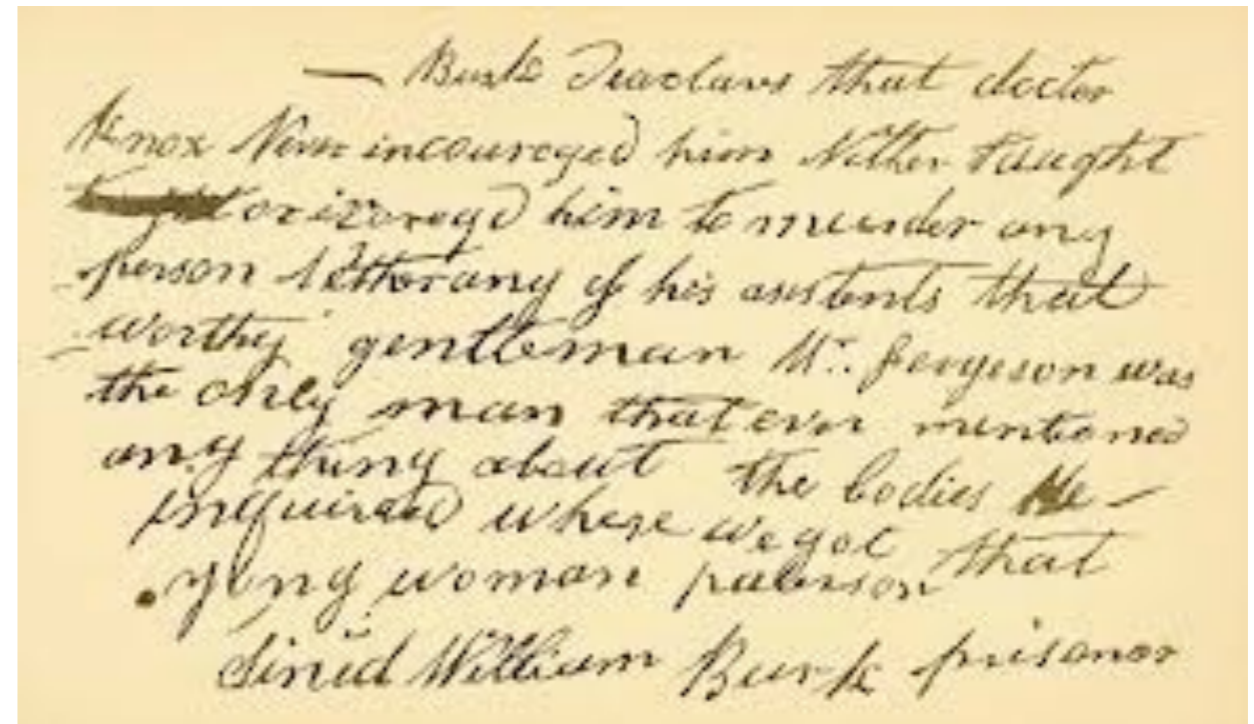 — Burk deaclars that docter
Knox Never incouraged him Nither taught
or incoregd him to murder any
person Nether any of his asistents that
worthy gentleman Mr. Fergeson was
the only man that ever mentioned
any thing about the bodies He —
inquired where we got that
yong woman paterson
Sined William Burk prisoner